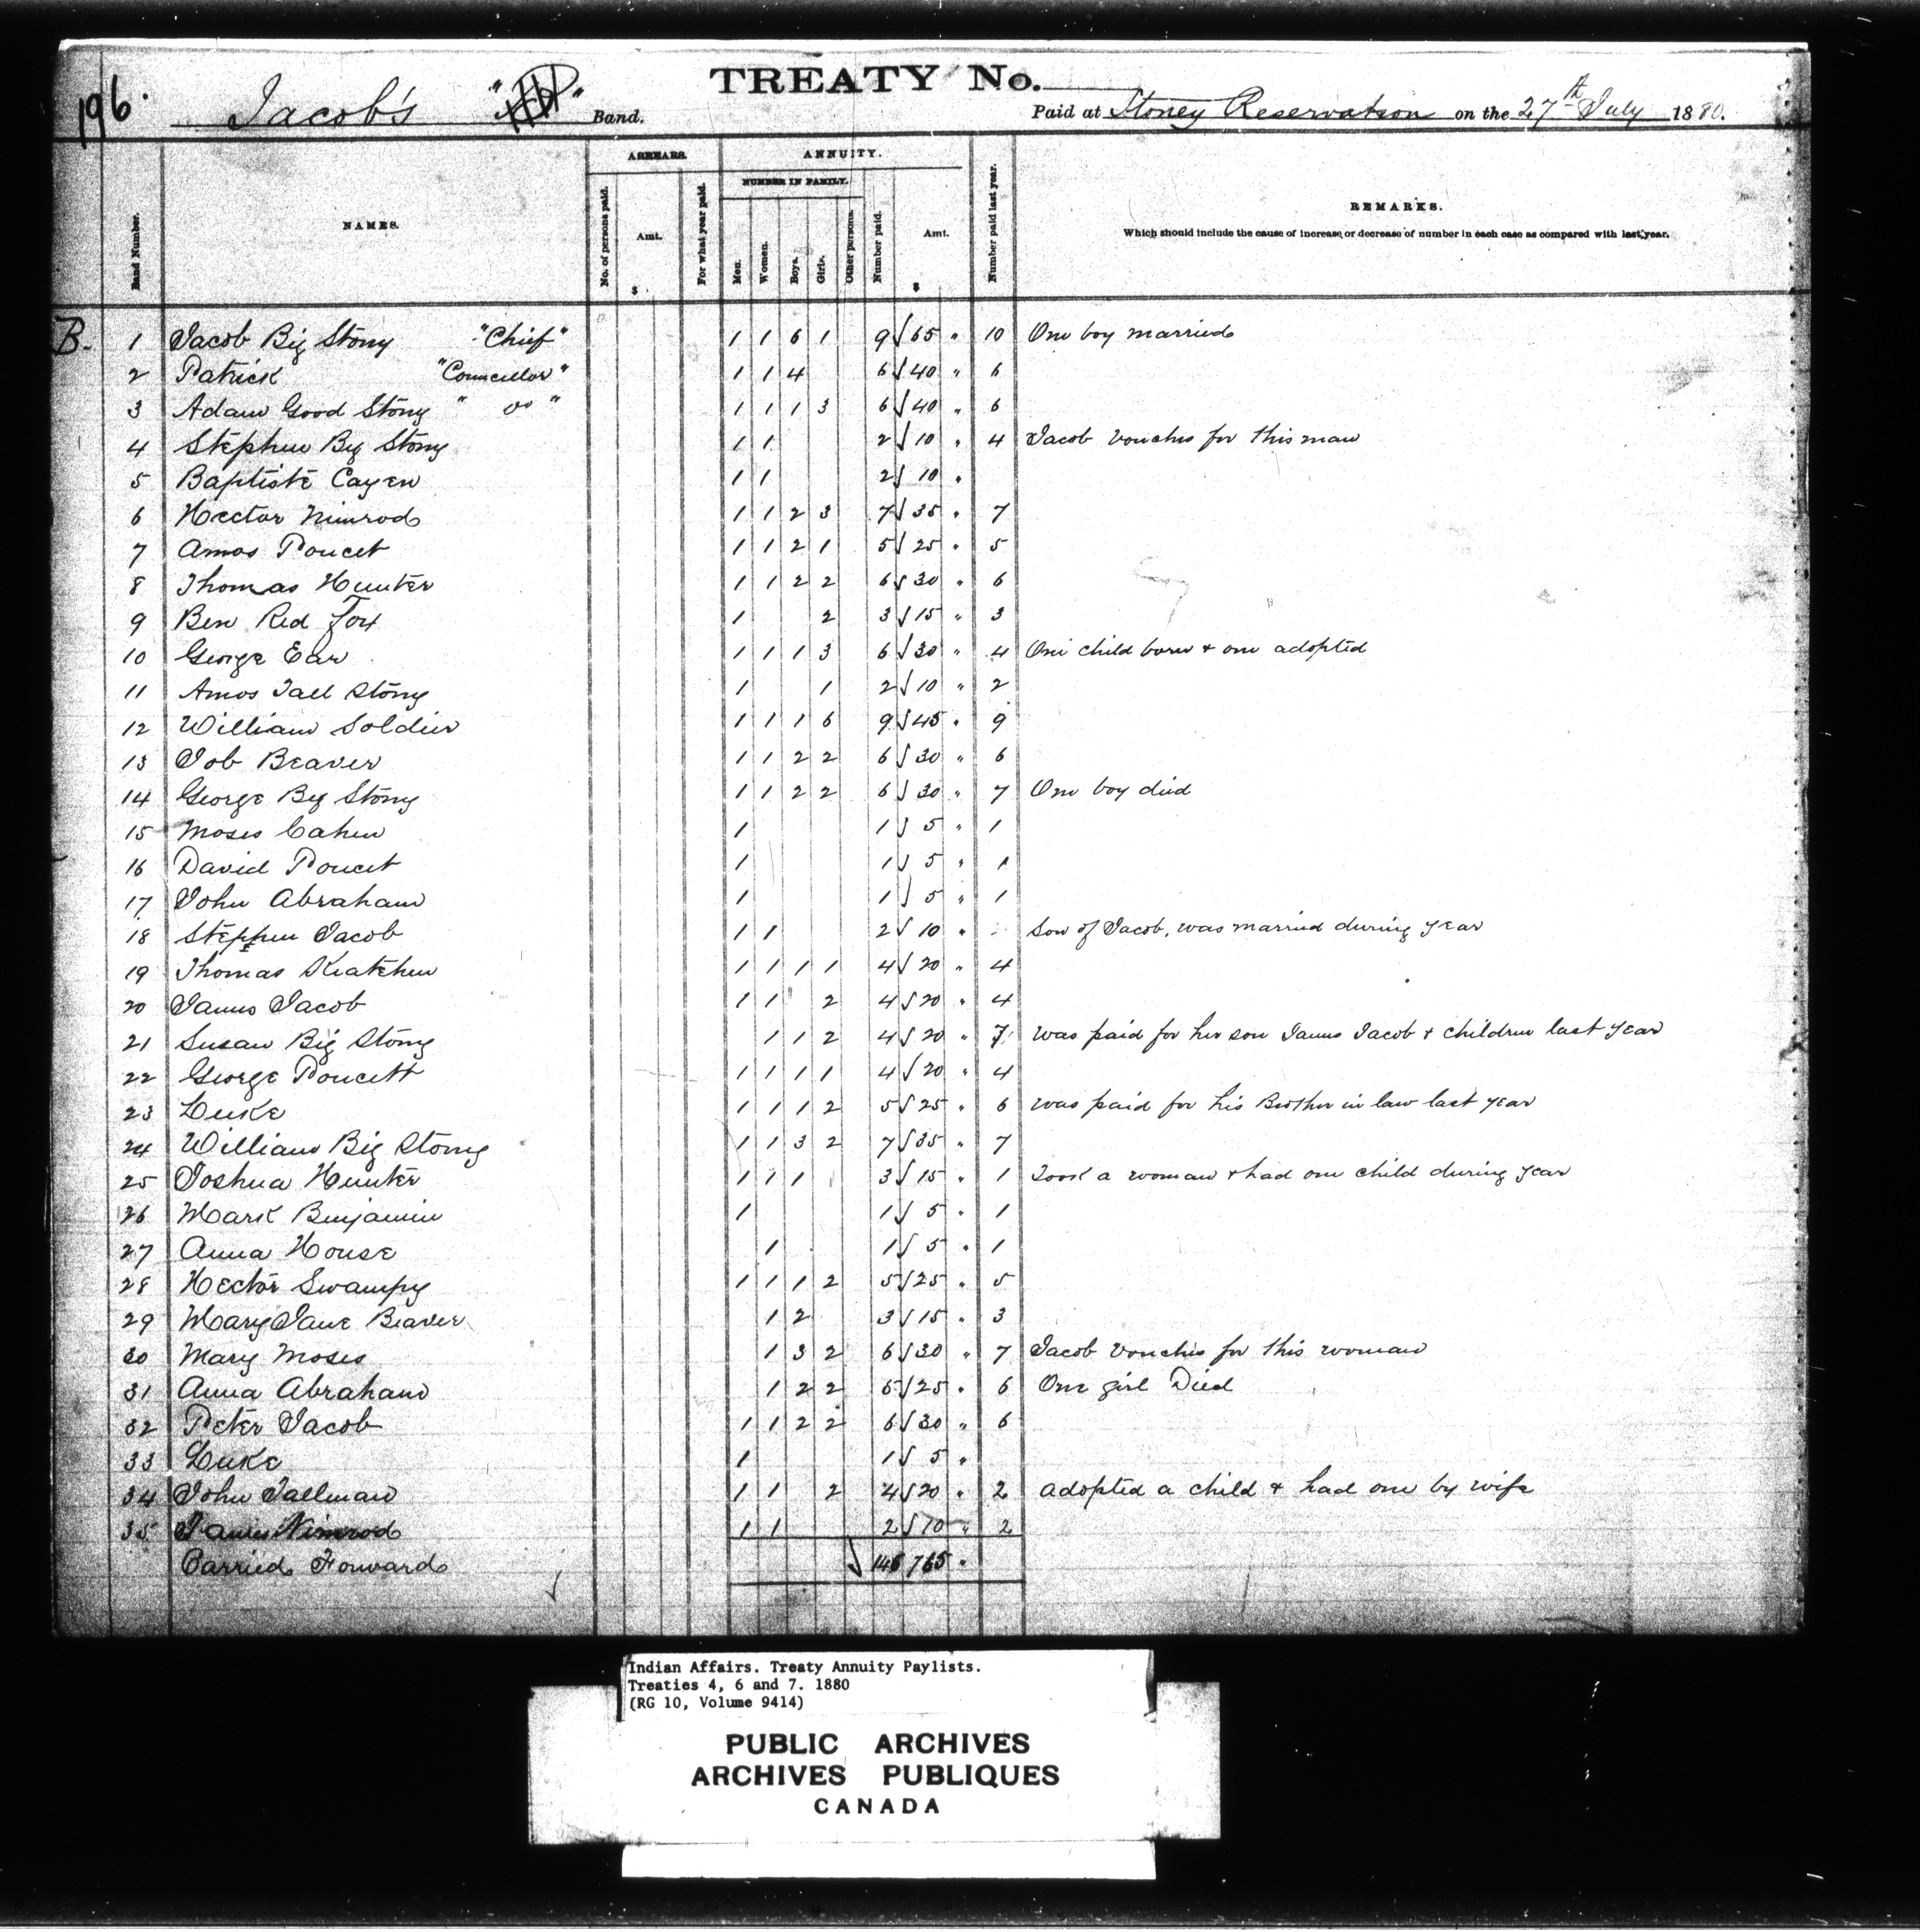 196.
TREATY No.
Jacob's " " Band.
Paid at Stoney Reservation on the 27th July 1880.
Band Number.
NAMES.
ARREARS.
No. of persons paid.
Amt.
$
For what year paid.
ANNUITY.
NUMBER IN FAMILY.
Men.
Women.
Boys.
Girls.
Other persons.
Number paid.
Amt.
$
Number paid last year.
REMARKS.
Which should include the cause of increase or decrease of number in each case as compared with last year.
B. 1 Jacob Big Stony "Chief" 1 1 6 1 9 √ 65 " 10 One boy married
2 Patrick "Councillor" 1 1 4 6 √ 40 " 6
3 Adam Good Stony " do " 1 1 1 3 6 √ 40 " 6
4 Stephen Big Stony 1 1 2 √ 10 " 4 Jacob vouches for this man
5 Baptiste Cayen 1 1 2 √ 10 "
6 Hector Nimrod 1 1 2 3 7 √ 35 " 7
7 Amos Poucet 1 1 2 1 5 √ 25 " 5
8 Thomas Hunter 1 1 2 2 6 √ 30 " 6
9 Ben Red Fox 1 2 3 √ 15 " 3
10 George Ear 1 1 1 3 6 √ 30 " 4 One child born & one adopted
11 Amos Tall Stony 1 1 2 √ 10 " 2
12 William Soldier 1 1 1 6 9 √ 45 " 9
13 Job Beaver 1 1 2 2 6 √ 30 " 6
14 George Big Stony 1 1 2 2 6 √ 30 " 7 One boy died
15 Moses Cahen 1 1 √ 5 " 1
16 David Poucet 1 1 √ 5 " 1
17 John Abraham 1 1 √ 5 " 1
18 Stephen Jacob 1 1 2 √ 10 " Son of Jacob, was married during year
19 Thomas Keatchen 1 1 1 1 4 √ 20 " 4
20 James Jacob 1 1 2 4 √ 20 " 4
21 Susan Big Stony 1 1 2 4 √ 20 " 7 was paid for her son James Jacob & children last year
22 George Poucett 1 1 1 1 4 √ 20 " 4
23 Luke 1 1 1 2 5 √ 25 " 6 was paid for his Brother in law last year
24 William Big Stony 1 1 3 2 7 √ 35 " 7
25 Joshua Hunter 1 1 1 3 √ 15 " 1 Took a woman & had one child during year
26 Mark Benjamin 1 1 √ 5 " 1
27 Anna House 1 1 √ 5 " 1
28 Hector Swampy 1 1 1 2 5 √ 25 " 5
29 Mary Jane Beaver 1 2 3 √ 15 " 3
30 Mary Moses 1 3 2 6 √ 30 " 7 Jacob vouches for this woman
31 Anna Abraham 1 2 2 5 √ 25 " 6 One girl Died
32 Peter Jacob 1 1 2 2 6 √ 30 " 6
33 Luke 1 1 √ 5 "
34 John Tallman 1 1 2 4 √ 20 " 2 adopted a child & had one by wife
35 James Nimrod 1 1 2 √ 10 " 2
Carried Forward √ 146 765 "
Indian Affairs. Treaty Annuity Paylists.
Treaties 4, 6 and 7. 1880
(RG 10, Volume 9414)
PUBLIC ARCHIVES
ARCHIVES PUBLIQUES
CANADA